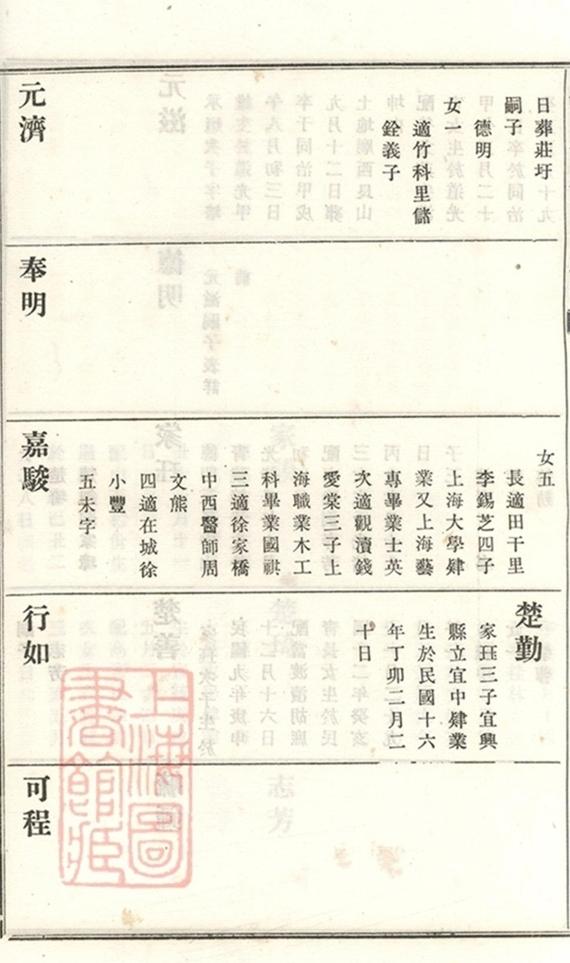 日葬莊圩
嗣子
德明
女一
適竹科里儲
銓義子
元濟
奉明
女五
長適田干里
李錫芝四子
上海大學肄
業又上海藝
專畢業士英
次適觀瀆錢
愛棠三子上
海職業木工
科畢業國祺
三適徐家橋
中西醫師周
文熊
四適在城徐
小豐
五未字
嘉駿
楚勤
家珏三子宜興
縣立宜中肄業
生於民國十六
年丁卯二月二
十日
行如
可程
上海圖
書館藏